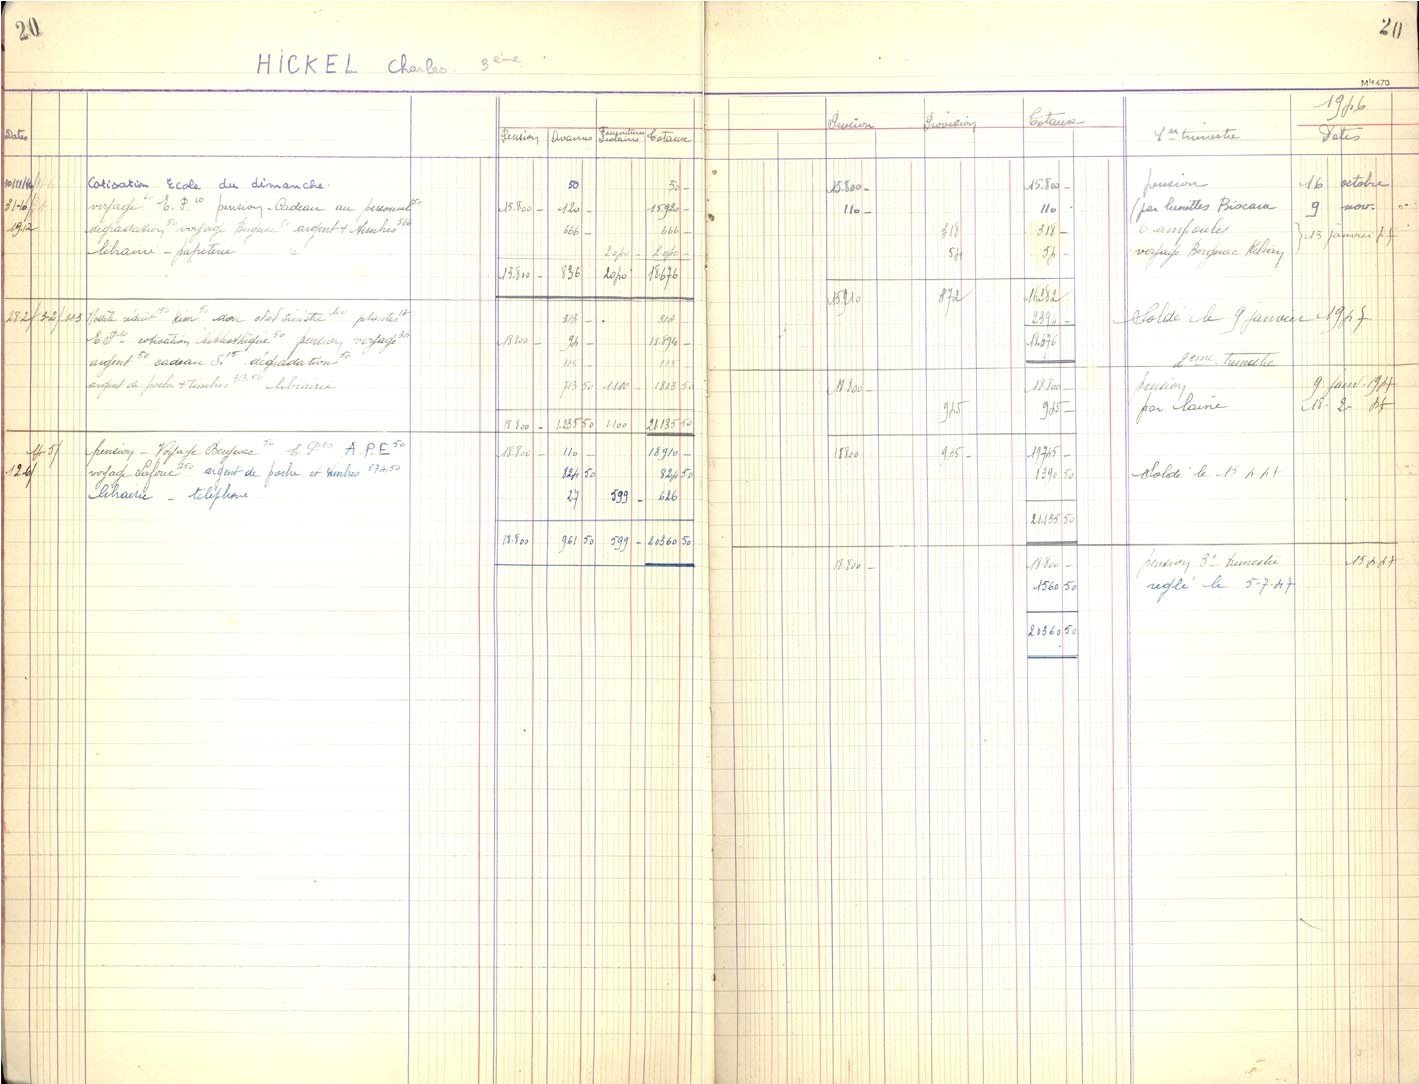 20
HICKEL Charles. 3ème
Dates Pension Avances Fournitures Scolaires Totaux
Cotisation Ecole du dimanche. 50 50 -
voyage E. P. pension - Cadeau au personnel 15.800 - 120 - 15920 -
19/12 dégradation 50 voyage Bergerac argent + timbres 566 666 - 666 -
librairie - papeterie 2040 - 2040 -
15.800 - 836 2040 18676
28.2/ 3-2/
E P cotisation bibliothèque 50 pension voyage 18.800 - 94 - 18.894 -
argent 50 cadeau S. 15 dégradation 50 115 - 115 -
argent de poche + timbres 713.50 librairie 713 50 1.100 - 1813 50
18.800 - 1.235 50 1.100 21.135 50
pension - Voyage Bergerac 50 E P 10 A.P.E 50 18.800 - 110 - 18910 -
12.6/ voyage 250 argent de poche et timbres 574.50 824 50 824 50
librairie - téléphone 27 599 - 626
18.800 961 50 599 - 20360 50
20
Mle 470
1946
Pension Provision Totaux 1er trimestre Dates
15.800 - 15.800 - pension 16 octobre
110 - 110 - par lunettes Biscara 9 nov.
318 318 - ampoules 13 janvier 47
54 54 - voyage Bergerac
15910 872 16282
2394 - Soldé le 9 janvier 1947
18676
2eme trimestre
18.800 - 18.800 - pension 9 janv. 1947
945 945 - par laine 18. 2 47
18800 945 - 19745 -
1390 50 Soldé le 15 4 47
21.135 50
18.800 - 18.800 - pension 3e trimestre 15 4 47
1560 50 reglé le 5-7-47
20360 50